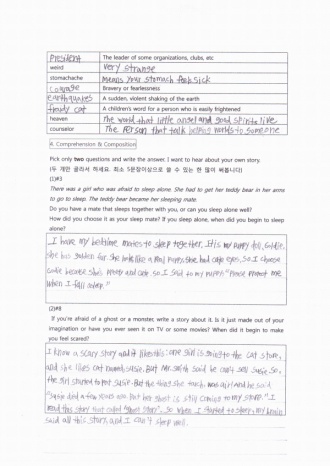 President The leader of some organizations, clubs, etc
weird very strange
stomachache means your stomach feels sick
courage Bravery or fearlessness
earthquakes A sudden, violent shaking of the earth
fraidy cat A children's word for a person who is easily frightened
heaven The world that little angel and good spirits live
counselor The person that talk helping words to someone
4. Comprehension & Composition
Pick only two questions and write the answer. I want to hear about your own story.
(두 개만 골라서 하세요. 최소 5문장이상으로 쓸 수 있는 한 많이 써봅니다)
(1)#3
There was a girl who was afraid to sleep alone. She had to get her teddy bear in her arms
to go to sleep. The teddy bear became her sleeping mate.
Do you have a mate that sleeps together with you, or can you sleep alone well?
How did you choose it as your sleep mate? If you sleep alone, when did you begin to sleep
alone?
I have my bedtime mates to sleep together. It is my puppy doll, Goldie.
she has golden fur. She looks like a real puppy. She had cute eyes. So I choose
Goldie because she's pretty and cute. So I said to my puppy: "Please protect me
when I fall asleep."
(2)#8
If you're afraid of a ghost or a monster, write a story about it. Is it just made out of your
imagination or have you ever seen it on TV or some movies? When did it begin to make
you feel scared?
I know a scary story and it likes this: one girl is going to the cat store,
and she likes cat named, Susie. But Mr. Smith said he can't sell Susie. So,
the girl started to pet Susie. But the thing she touch, was air! and he said
"Susie died a few years ago. But her ghost is still coming to my store." I
read this story that called "ghost story". So when I started to sleep, my brain
said all this story, and I can't sleep well.